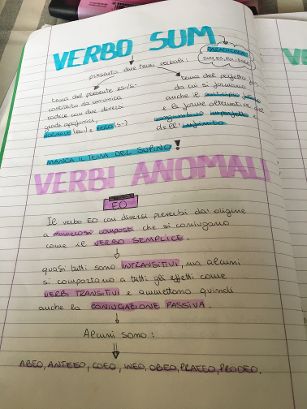 VERBO SUM
PARADIGMA:
sum, es, fui, esse
presenta due temi verbali:
tema del presente es-/s-
costituito da un'unica
radice con due diversi
gradi apofonici,
tema del perfetto
da cui si formano
anche il
e le forme
dell'infinito
MANCA IL TEMA DEL SUPINO!
VERBI ANOMALI
EO
Il verbo EO con diversi preverbi dà origine
a numerosi composti che si coniugano
come il VERBO SEMPLICE
quasi tutti sono INTRANSITIVI, ma alcuni
si comportano a tutti gli effetti come
VERBI TRANSITIVI e ammettono quindi
anche la CONIUGAZIONE PASSIVA.
Alcuni sono:
ABEO, ANTEEO, COEO, INEO, OBEO, PRAEEO, PRODEO.